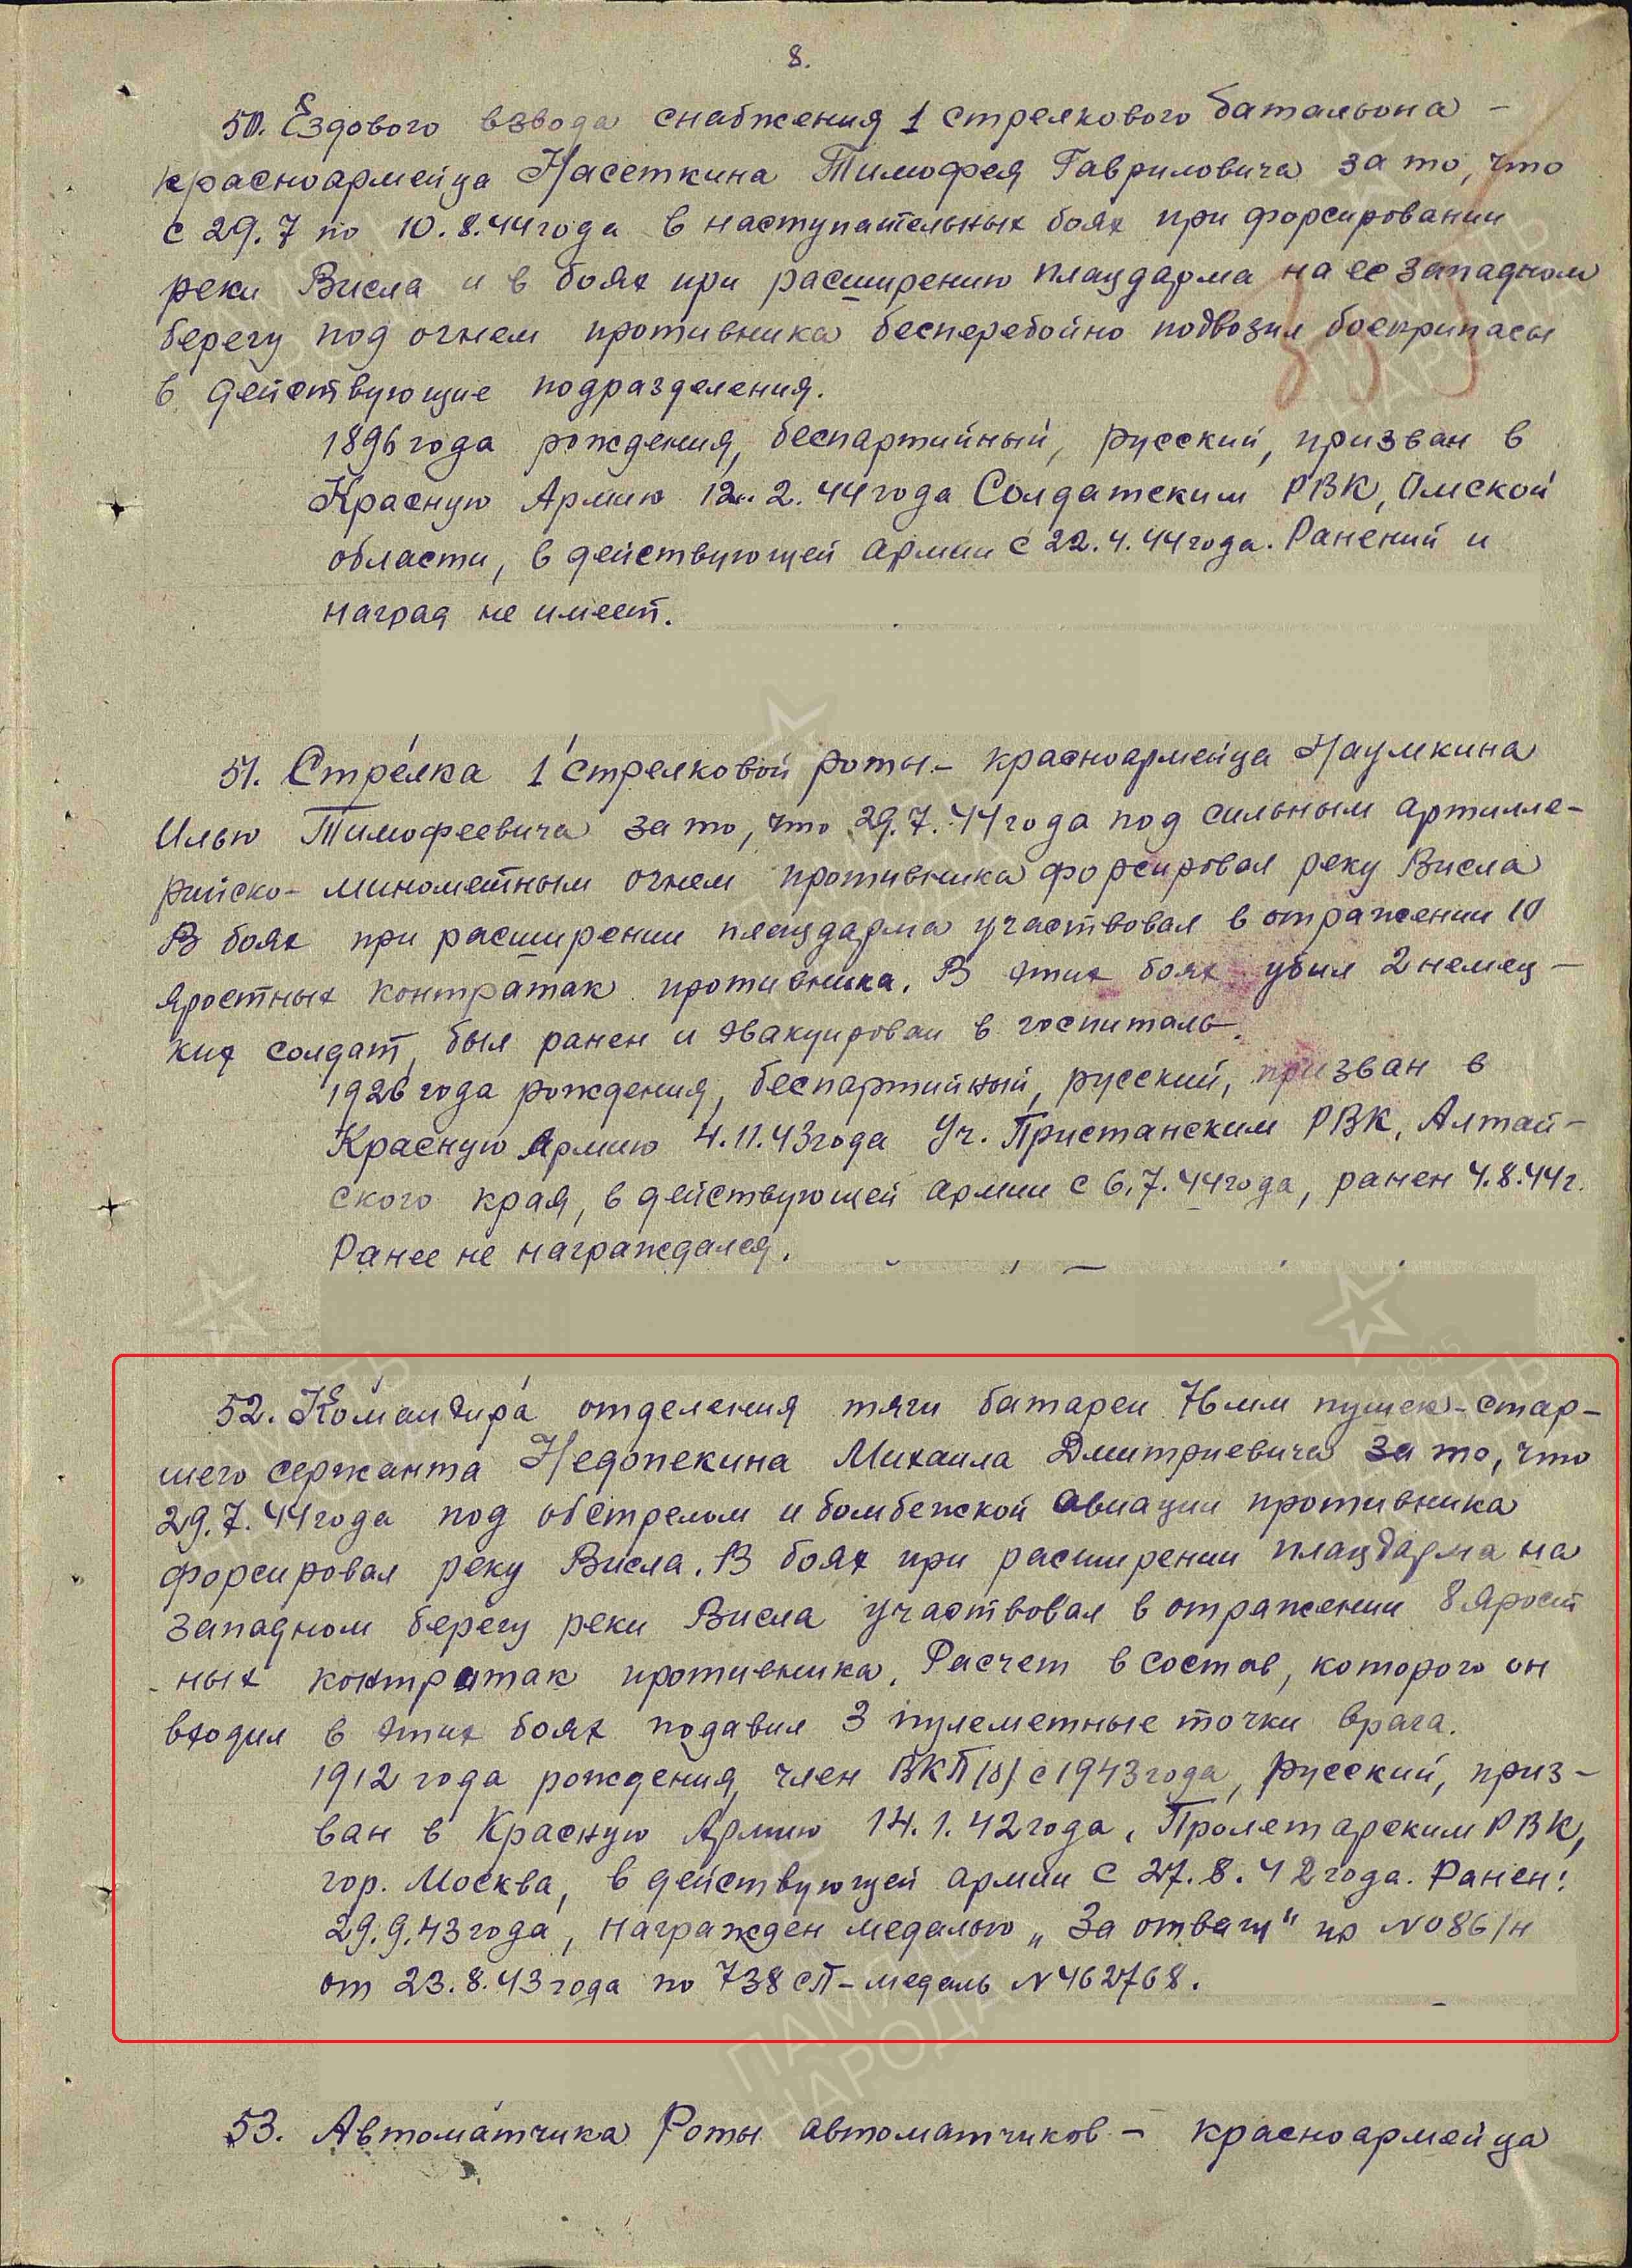 8.
50. Ездового взвода снабжения 1 стрелкового батальона –
красноармейца Насеткина Тимофея Гавриловича за то, что
с 29.7 по 10.8.44 года в наступательных боях при форсировании
реки Висла и в боях при расширению плацдарма на ее западном
берегу под огнем противника бесперебойно подвозил боеприпасы
в действующие подразделения.
1896 года рождения, беспартийный, русский, призван в
Красную Армию 12.2.44 года Солдатским РВК, Омской
области, в действующей армии с 22.4.44 года. Ранений и
наград не имеет.
51. Стрелка 1 стрелковой роты – красноармейца Наумкина
Илью Тимофеевича за то, что 29.7.44 года под сильным артилле-
рийско-минометным огнем противника форсировал реку Висла
В боях при расширении плацдарма участвовал в отражении 10
яростных контратак противника. В этих боях убил 2 немец-
ких солдат, был ранен и эвакуирован в госпиталь.
1926 года рождения, беспартийный, русский, призван в
Красную Армию 4.11.43 года Уч. Пристанским РВК, Алтай-
ского края, в действующей армии с 6.7.44 года, ранен 4.8.44 г.
Ранее не награждался.
52. Командира отделения тяги батареи 76 мм пушек – стар-
шего сержанта Недопекина Михаила Дмитриевича за то, что
29.7.44 года под обстрелом и бомбежкой авиации противника
форсировал реку Висла. В боях при расширении плацдарма на
западном берегу реки Висла участвовал в отражении 8 ярост
ных контратак противника. Расчет в состав, которого он
входил в этих боях подавил 3 пулеметные точки врага.
1912 года рождения, член ВКП/б/ с 1943 года, русский, приз-
ван в Красную Армию 14.1.42 года, Пролетарским РВК,
гор. Москва, в действующей армии с 27.8.42 года. Ранен:
29.9.43 года, награжден медалью „За отвагу" пр N086/н
от 23.8.43 года по 738 СП – медаль N462768.
53. Автоматчика Роты автоматчиков – красноармейца
ПАМЯТЬ
НАРОДА